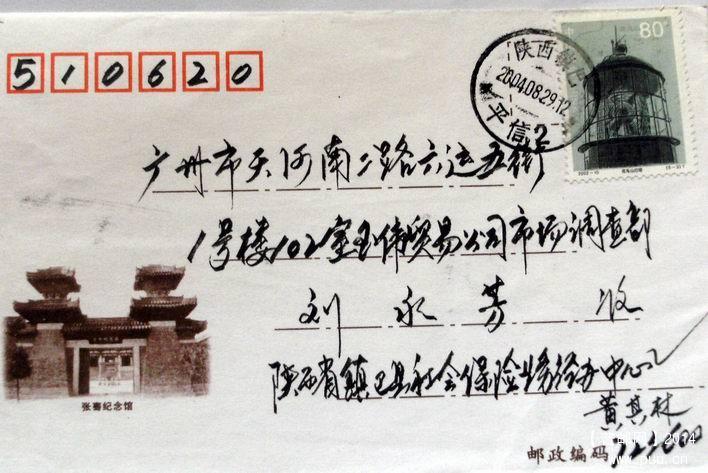 510620
80
陕西镇巴
2004.08.29.12
平信2
2002-10
广州市天河南二路六运五街
1号楼102室玉伟贸易公司市场调查部
刘永芳 收
陕西省镇巴县社会保险业务经办中心
黄其林
张骞纪念馆
邮政编码
2014